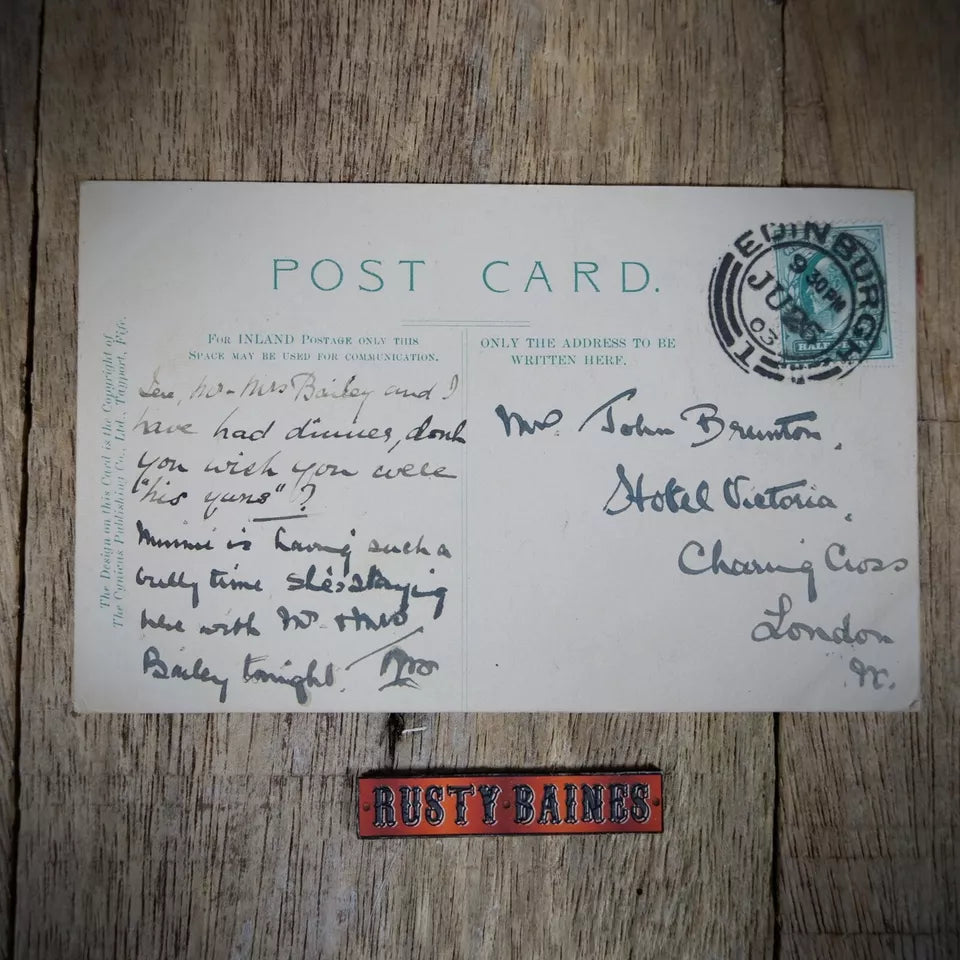 POST CARD.
FOR INLAND POSTAGE ONLY THIS
SPACE MAY BE USED FOR COMMUNICATION.
ONLY THE ADDRESS TO BE
WRITTEN HERE.
The Design on this Card is the Copyright of
The Cynicus Publishing Co., Ltd., Tayport, Fife.
EDINBURGH
9 30PM
JU 26
03
1
HALF
Mrs Bailey and I
have had dinner, dont
you wish you were
"his yuns"?
Minnie is having such a
bully time shes staying
here with Mr & Mrs
Bailey tonight.
Mr. John Brunton,
Hotel Victoria,
Charing Cross
London
RUSTY BAINES